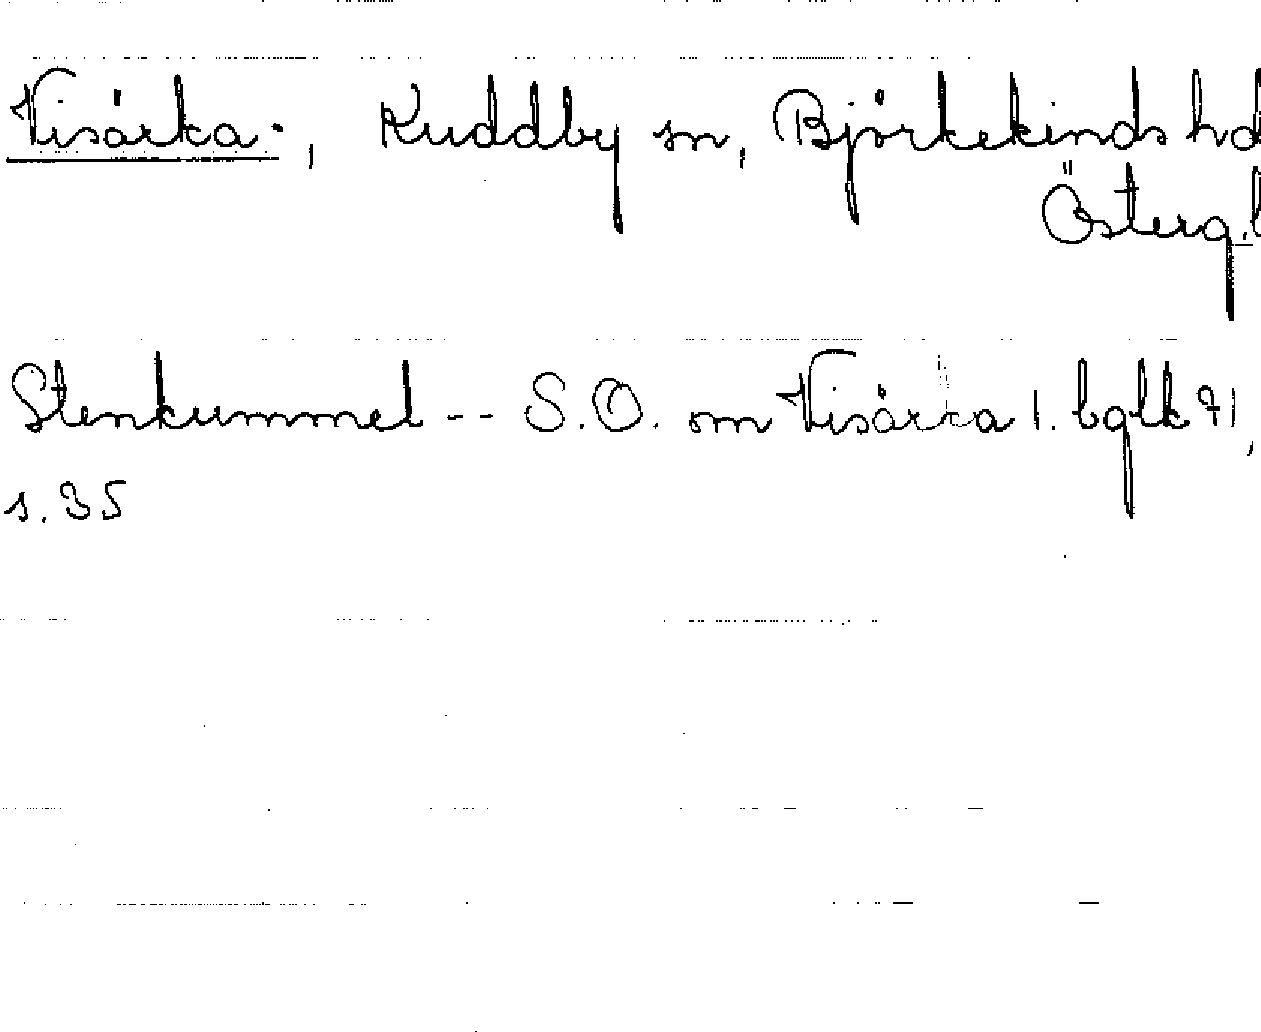 Visärka, Kuddby sn, Björkekinds hd
Österg.l
Stenkummel -- S.O. om Visärka l. bglk 71,
s. 35